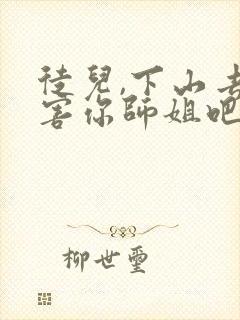 徒兒,下山去
害你師姐吧
柳世璽